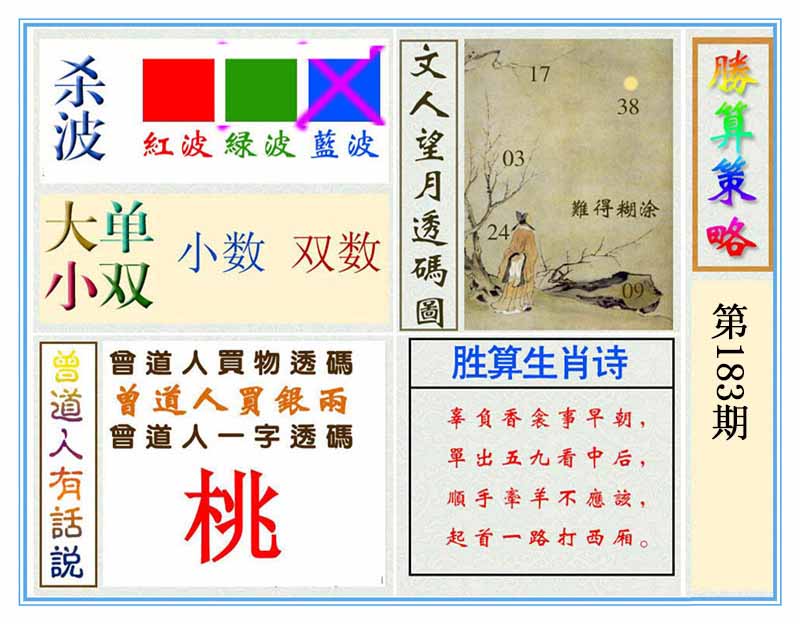 杀波
紅波 緑波 藍波
大单
小双
小数 双数
文人望月透碼圖
17
38
03
難得糊涂
24
09
勝算策略
第183期
曾道人有話説
曾道人買物透碼
曾道人買銀兩
曾道人一字透碼
桃
胜算生肖诗
辜負香衾事早朝，
單出五九看中后，
順手牽羊不應該，
起首一路打西厢。